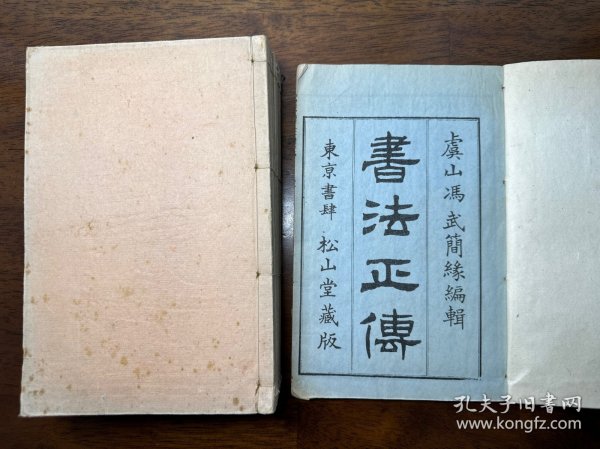 虞山馮武簡緣編輯
書法正傳
東京書肆 松山堂藏版
孔夫子旧书网
www.kongfz.com